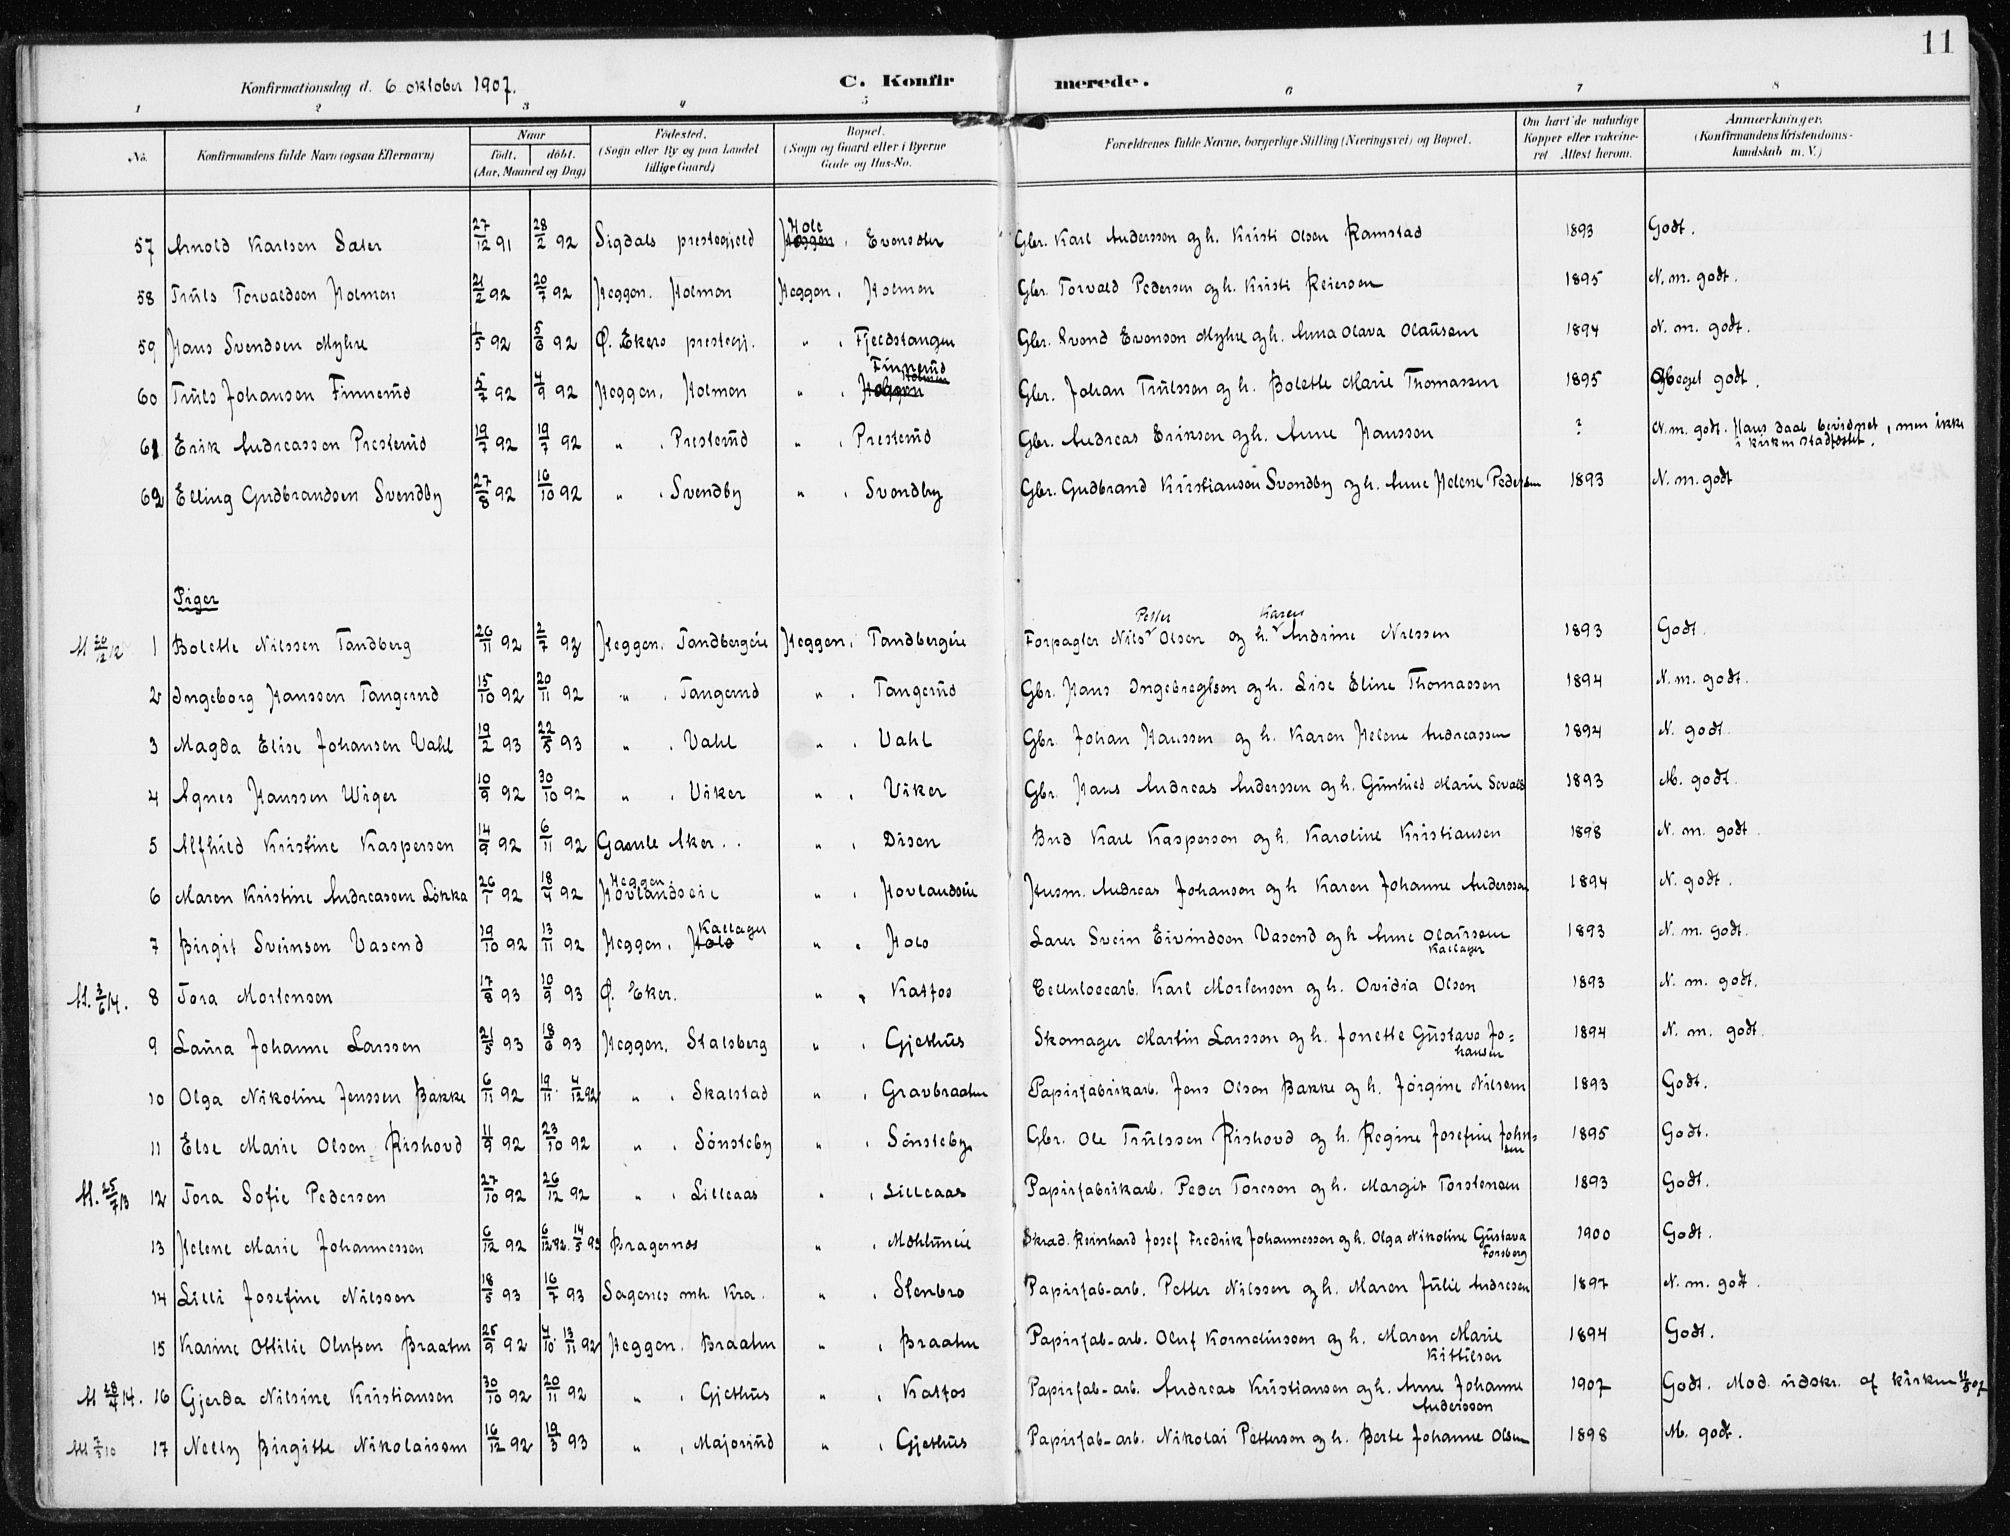 11
Konfirmationsdag d. 6 oktober 1907. C. Konfirmerede.
1 2 3 4 5 6 7 8
No. Konfirmandens fulde Navn (ogsaa Efternavn) Naar født. døbt. (Aar, Maaned og Dag) Fødested. (Sogn eller By og paa Landet tillige Gaard) Bopæl. (Sogn og Gaard eller i Byerne Gade og Hus-No. Forældrenes fulde Navne, borgerlige Stilling (Næringsvei) og Bopæl. Om havt de naturlige Kopper eller vakcineret Attest herom. Anmærkninger. (Konfirmandens Kristendomskundskab m. V.)
57 Arnold Karlsen Sater 27/12 91 28/2 92 Sigdals prestegjeld Hole Heggen, Evensdter Gbr. Karl Anderssen og h. Kristi Olsen Ramstad 1893 Godt.
58 Truls Torvaldsen Holmen 21/2 92 20/7 92 Heggen, Holmen Heggen, Holmen Gbr. Torvald Pedersen og h. Kristi Reiersen 1895 N. m. godt.
59 Hans Svendsen Myhre 1/5 92 5/6 92 Ø. Ekers prestegj. " , Fjeldstangen Gbr. Svend Evensen Myhre og h. Anna Olava Olausen 1894 N. m. godt.
60 Truls Johansen Finnerud 5/7 92 4/9 92 Heggen, Holmen " , Finnerud Holmen Gbr. Johan Trulssen og h. Bolette Marie Thomassen 1895 Meget godt.
61 Erik Andreassen Presterud 19/7 92 19/7 92 " , Presterud " , Presterud Gbr. Andreas Eriksen og h. Anne Hanssen ? N. m. godt. Hans daab bevidnet, men ikke i kirken stadfæstet.
62 Elling Gudbrandsen Svendby 27/8 92 16/10 92 " , Svendby " , Svendby Gbr. Gudbrand Kristiansen Svendby og h. Anne Helene Pedersen 1893 N. m. godt
Piger
M 20/12 12 1 Bolette Nilssen Tandberg 26/11 92 2/7 93 Heggen, Tandbergeie Heggen, Tandbergeie Forpagter Nils Petter Olsen og h. Karen Andrine Nilssen 1893 Godt.
2 Ingeborg Hanssen Tangerud 15/10 92 20/11 92 " , Tangerud " , Tangerud Gbr. Hans Ingebregtsen og h. Lise Eline Thomassen 1894 N. m. godt.
3 Magda Elise Johansen Vahl 19/2 93 22/5 93 " , Vahl " , Vahl Gbr. Johan Hanssen og h. Karen Helene Andreassen 1894 N. godt.
4 Agnes Hanssen Wiger 10/9 92 30/10 92 " , Viker " , Viker Gbr. Hans Andreas Anderssen og h. Gunhild Marie Sevals 1893 M. godt.
5 Alfhild Kristine Kaspersen 14/9 92 6/11 92 Gamle Aker. . " , Disen Bud Karl Kaspersen og h. Karoline Kristiansen 1898 N. m. godt.
6 Maren Kristine Andreassen Løkka 26/1 92 18/4 92 Heggen Hovlandseie " , Hovlandseie Husm. Andreas Johansen og h. Karen Johanne Anderssen 1894 N. godt.
7 Birgit Sveinsen Vasend 19/10 92 13/11 92 Heggen, Kallager Hole " , Hole Lærer Svein Eivindsen Vasend og h Anne Olaussen Kallager 1893 N. m. godt.
M. 3/6 14. 8 Tora Mortensen 17/8 93 10/9 93 Ø. Eker. " , Katfos Cellulosearb. Karl Mortensen og h. Ovidia Olsen 1893 N. m. godt.
9 Laura Johanne Larssen 21/5 93 18/6 93 Heggen, Stalsberg " , Gjethus Skomager Martin Larsson og h. Jonette Gustava Johansen 1894 N. m. godt.
10 Olga Nikoline Jenssen Bakke 6/11 92 19/11. 4/12 92 " , Skalstad " , Gravbraaten Papirfabrikarb. Jens Olsen Bakke og h. Jørgine Nilsen 1893 Godt.
11 Else Marie Olsen Rishovd 11/9 92 23/10 92 " , Sønsteby " , Sønsteby Gbr. Ole Trulssen Rishovd og h. Regine Josefine Johnsen 1895 Godt.
M. 25/7 13 12 Tora Sofie Pedersen 27/10 92 26/12 92 " , Lilleaas " , Lilleaas Papirfabrikarb. Peder Toresen og h. Margit Torstensen 1893 Godt.
13 Helene Marie Johannessen 6/12 92 6/12 92. 14/5 93 Bragernes " , Møhluneie Skræd. Reinhard Josef Fredrik Johannessen og h. Olga Nikoline Gustava Forsberg 1900 Godt.
14 Lilli Josefine Nilssen 18/5 93 16/7 93 Sagenes mh. Kra. " , Stenbro Papirfab-arb. Petter Nilssen og h. Maren Julie Andresen 1897 N. m. godt.
15 Karine Ottilie Olufsen Braaten 25/9 92 4/10. 13/11 92 Heggen. Braaten " , Braaten Papirfab-arb. Oluf Korneliussen og h. Maren Marie Kittilsen 1894 Godt.
M 28/4 14. 16 Gjerda Nilsine Kristiansen 30/10 92 20/11 92 " , Gjethus " , Katfos Papirfab-arb. Andreas Kristiansen og h. Anne Johanne Anderssen 1907 Godt. Med. udskr. af kirken 07
M 7/5 10 17 Nelly Birgitte Nikolaisen 16/12 92 19/3 93 " , Majorud " , Gjethus Papirfab-arb. Nikolai Pettersen og h. Berte Johanne Olsen 1898 M. godt.